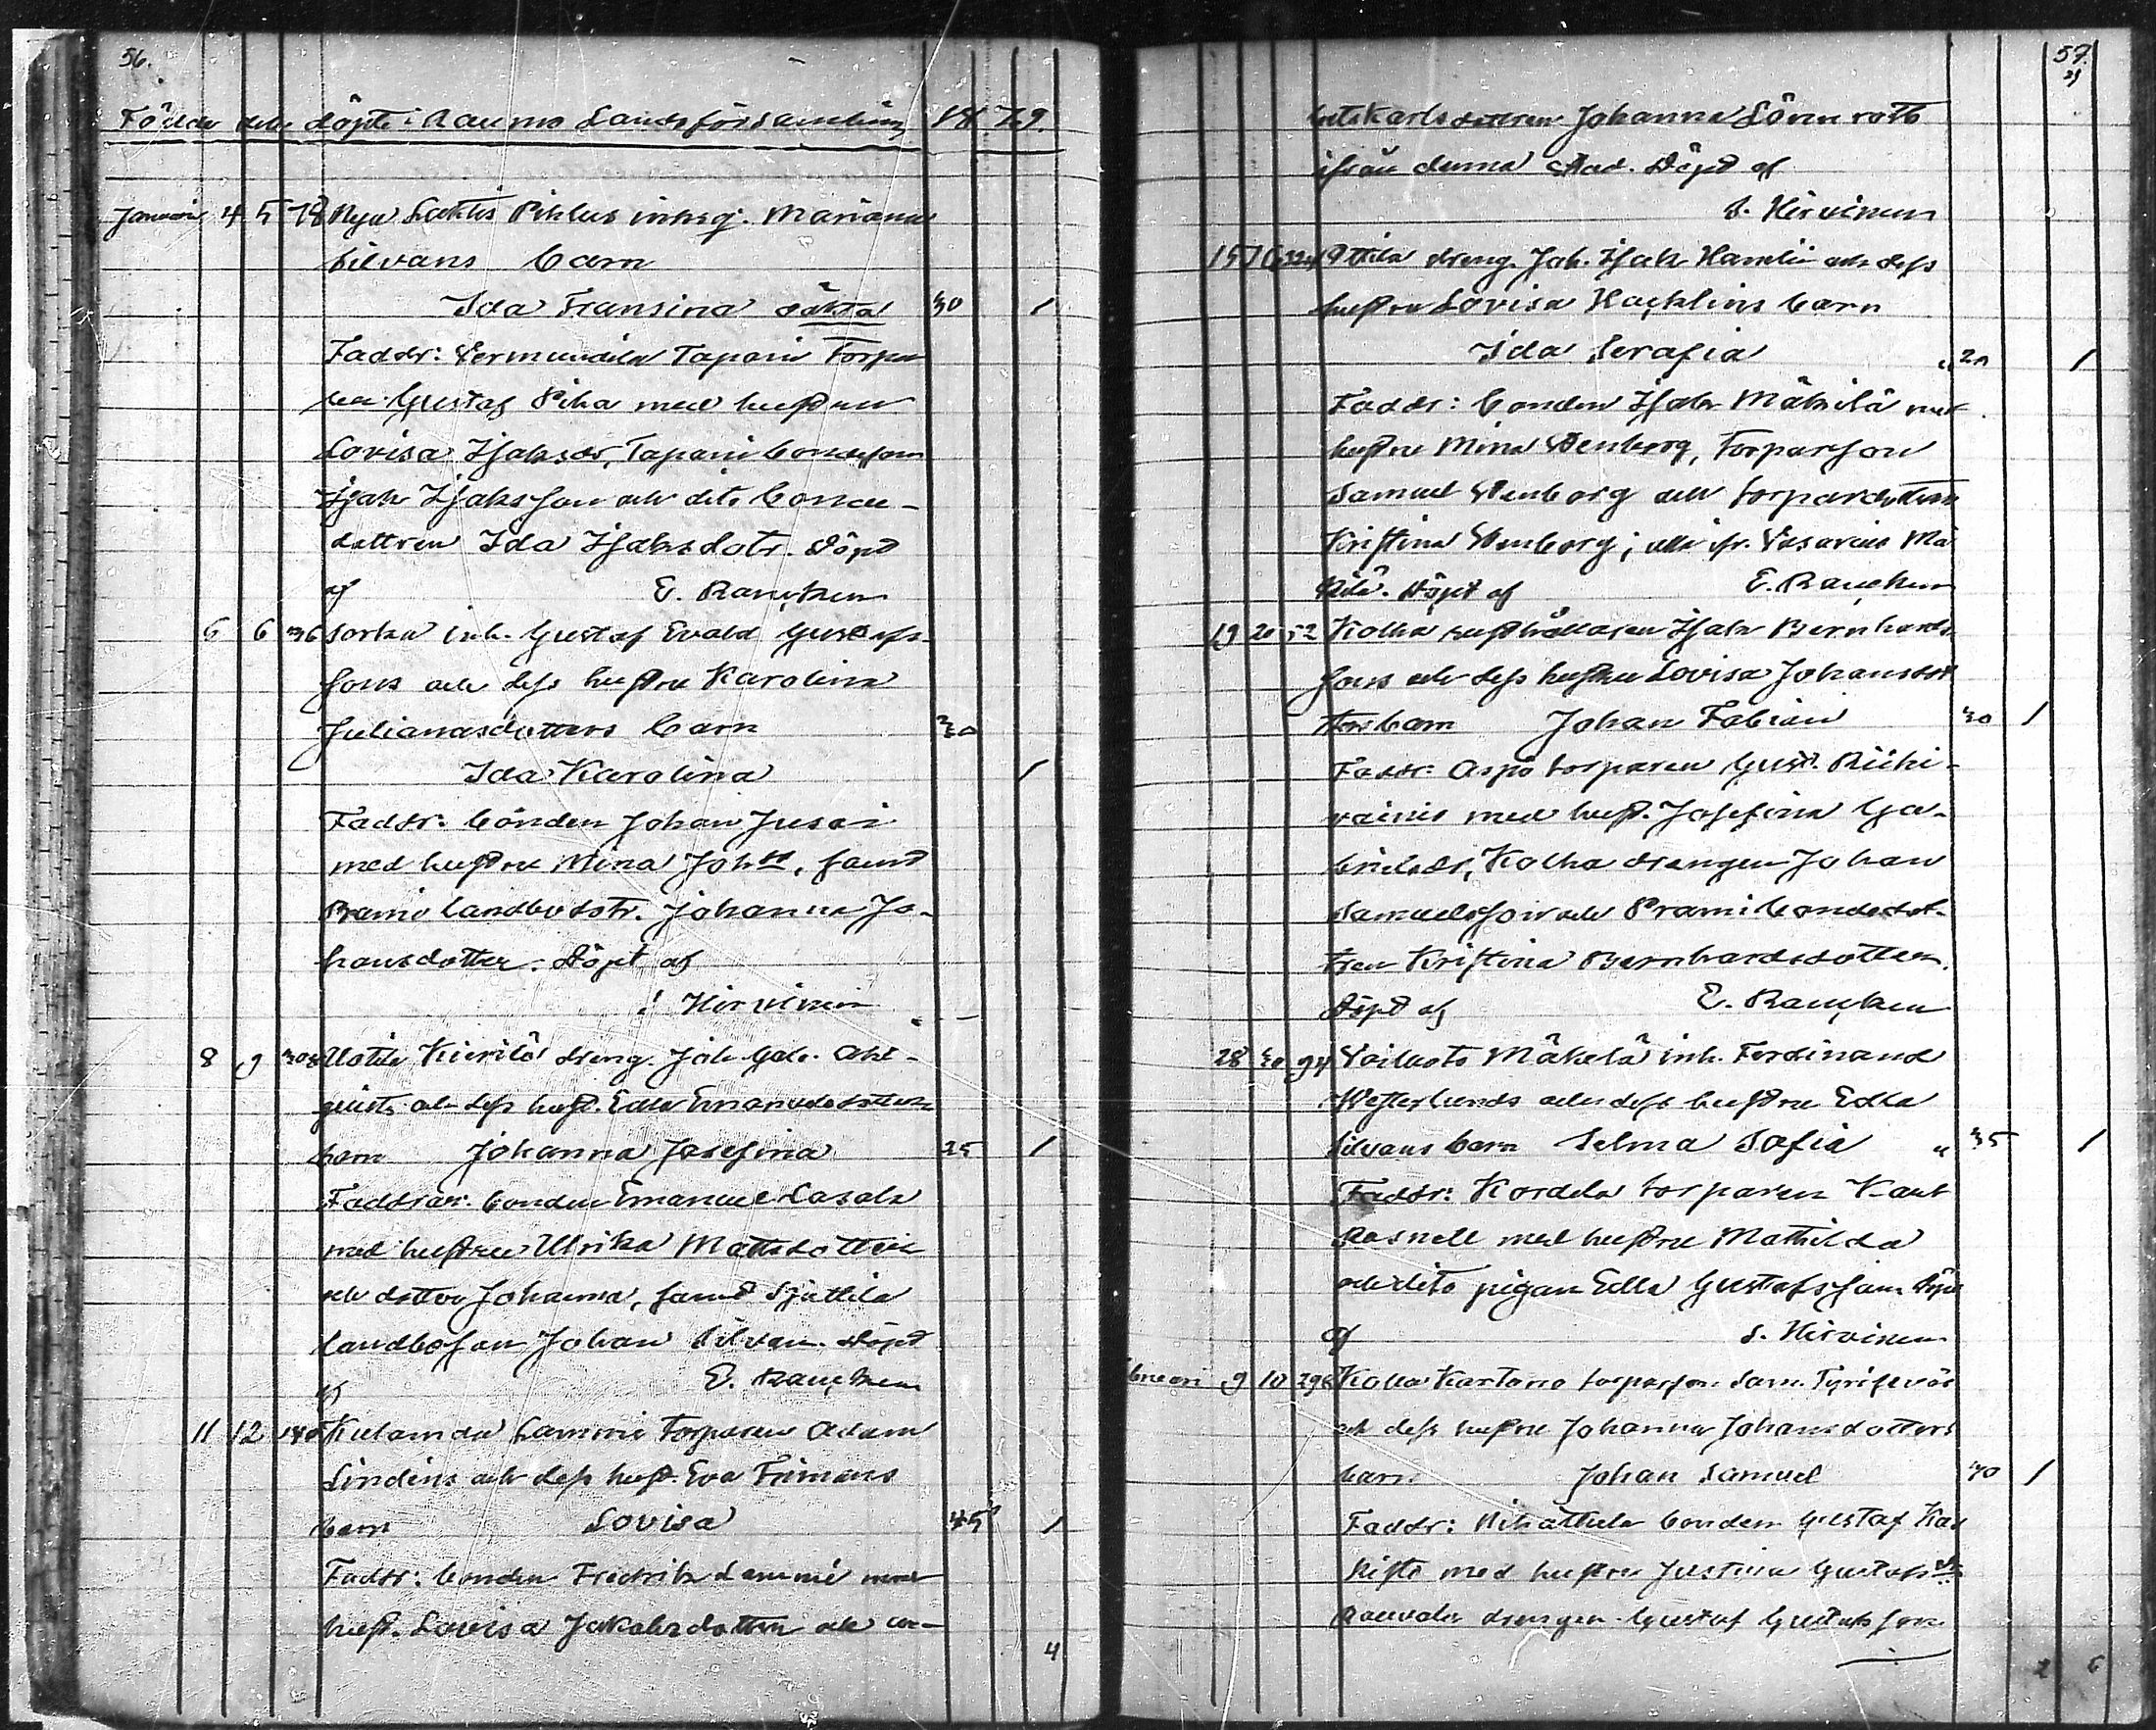 56.
Födde och döpte i Raumo Landsförsamling 1879.
Januari 4 5 78 Nya Lahtis Pihlus inhsg. Mariana
Silvans barn
Ida Fransina oäkta 30 1
Faddr: Vermundila Tapani Torpa
ren Gustaf Piha med hustru
Lovisa Isaksdr, Tapani bondeson
Isak Isaksson och dito bonde-
dottren Ida Isaksdotr. Döpt
af E. Rancken
6 6 36 Sorka inh. Gustaf Evald Gustafs-
sons och dess hustru Karolina
Julianasdotters barn 30
Ida Karolina 1
Faddr: bonden Johan Jusai
med hustru Mina Joh., samt
Prami landbodotr. Johanna Jo-
hansdotter. Döpt af
Hirvinen
8 9 Uotila Kierilä dreng. Joh. Gab.
och dess hust. Edla Emanuelsdotters
barn Johanna Josefina 25 1
Faddrar: bonden Emanuel Casals
med hustru Ulrika Mattsdotter
och dotter Johanna, samt Sjättila
landboson Johan Silvan. Döpt
af E. Rancken
11 12 Kulamaa Lammi torparen Adam
Lindens och dess hust. Eva Frimans
barn Lovisa 45 1
Faddr: bonden Fredrik Lammi med
hust. Lovisa Jakobsdotter och
4
57.
Johanna Lönnroth
ifrån denna stad. Döpt af
S. Hirvinen
15 16 Uttila dreng. Joh. Isak Hamlin och dess
hustru Lovisa Hacklins barn
Ida Serafia " 20 1
Faddr: bonden Isak Mäkilä med
hustru Mina Stenberg, Torparson
Samuel Stenborg och torpardottren
Kristina Stenborg; alla ifr. Vasarais Mä
kilä. Döpt af E. Rancken
19 20 52 Kolla husthållaren Isak Bernhards-
sons och dess hustru Lovisa Johansdot
ters barn Johan Fabian 30 1
Faddr: Aspo torparen Gust. Riihi-
vainio med hust. Josefina Ga-
brielsdr, Kolla drängen Johan
Samuelsson och Prami bondedot-
tren Kristina Bernhardsdotter.
Döpt af E. Rancken
28 30 94 Voiluoto Mäkelä inh. Ferdinand
Westerlunds och dess hustru Edla
Silvans barn Selma Sofia " 35 1
Faddr: Kordela torparen Kaut
Rasnell med hustru Mathilda
och dito pigan Edla Gustafsson. Döpt
af S. Hirvinen
9 10 Kolla Kartano torparson Sam. Tyrisevä
och dess hustru Johanna Johansdotters
barn Johan Samuel 30 1
Faddr: bonden Gustaf
med hustru Justina Gustafsdr
Rauvola drengen Gustaf Gustafsson
2 6